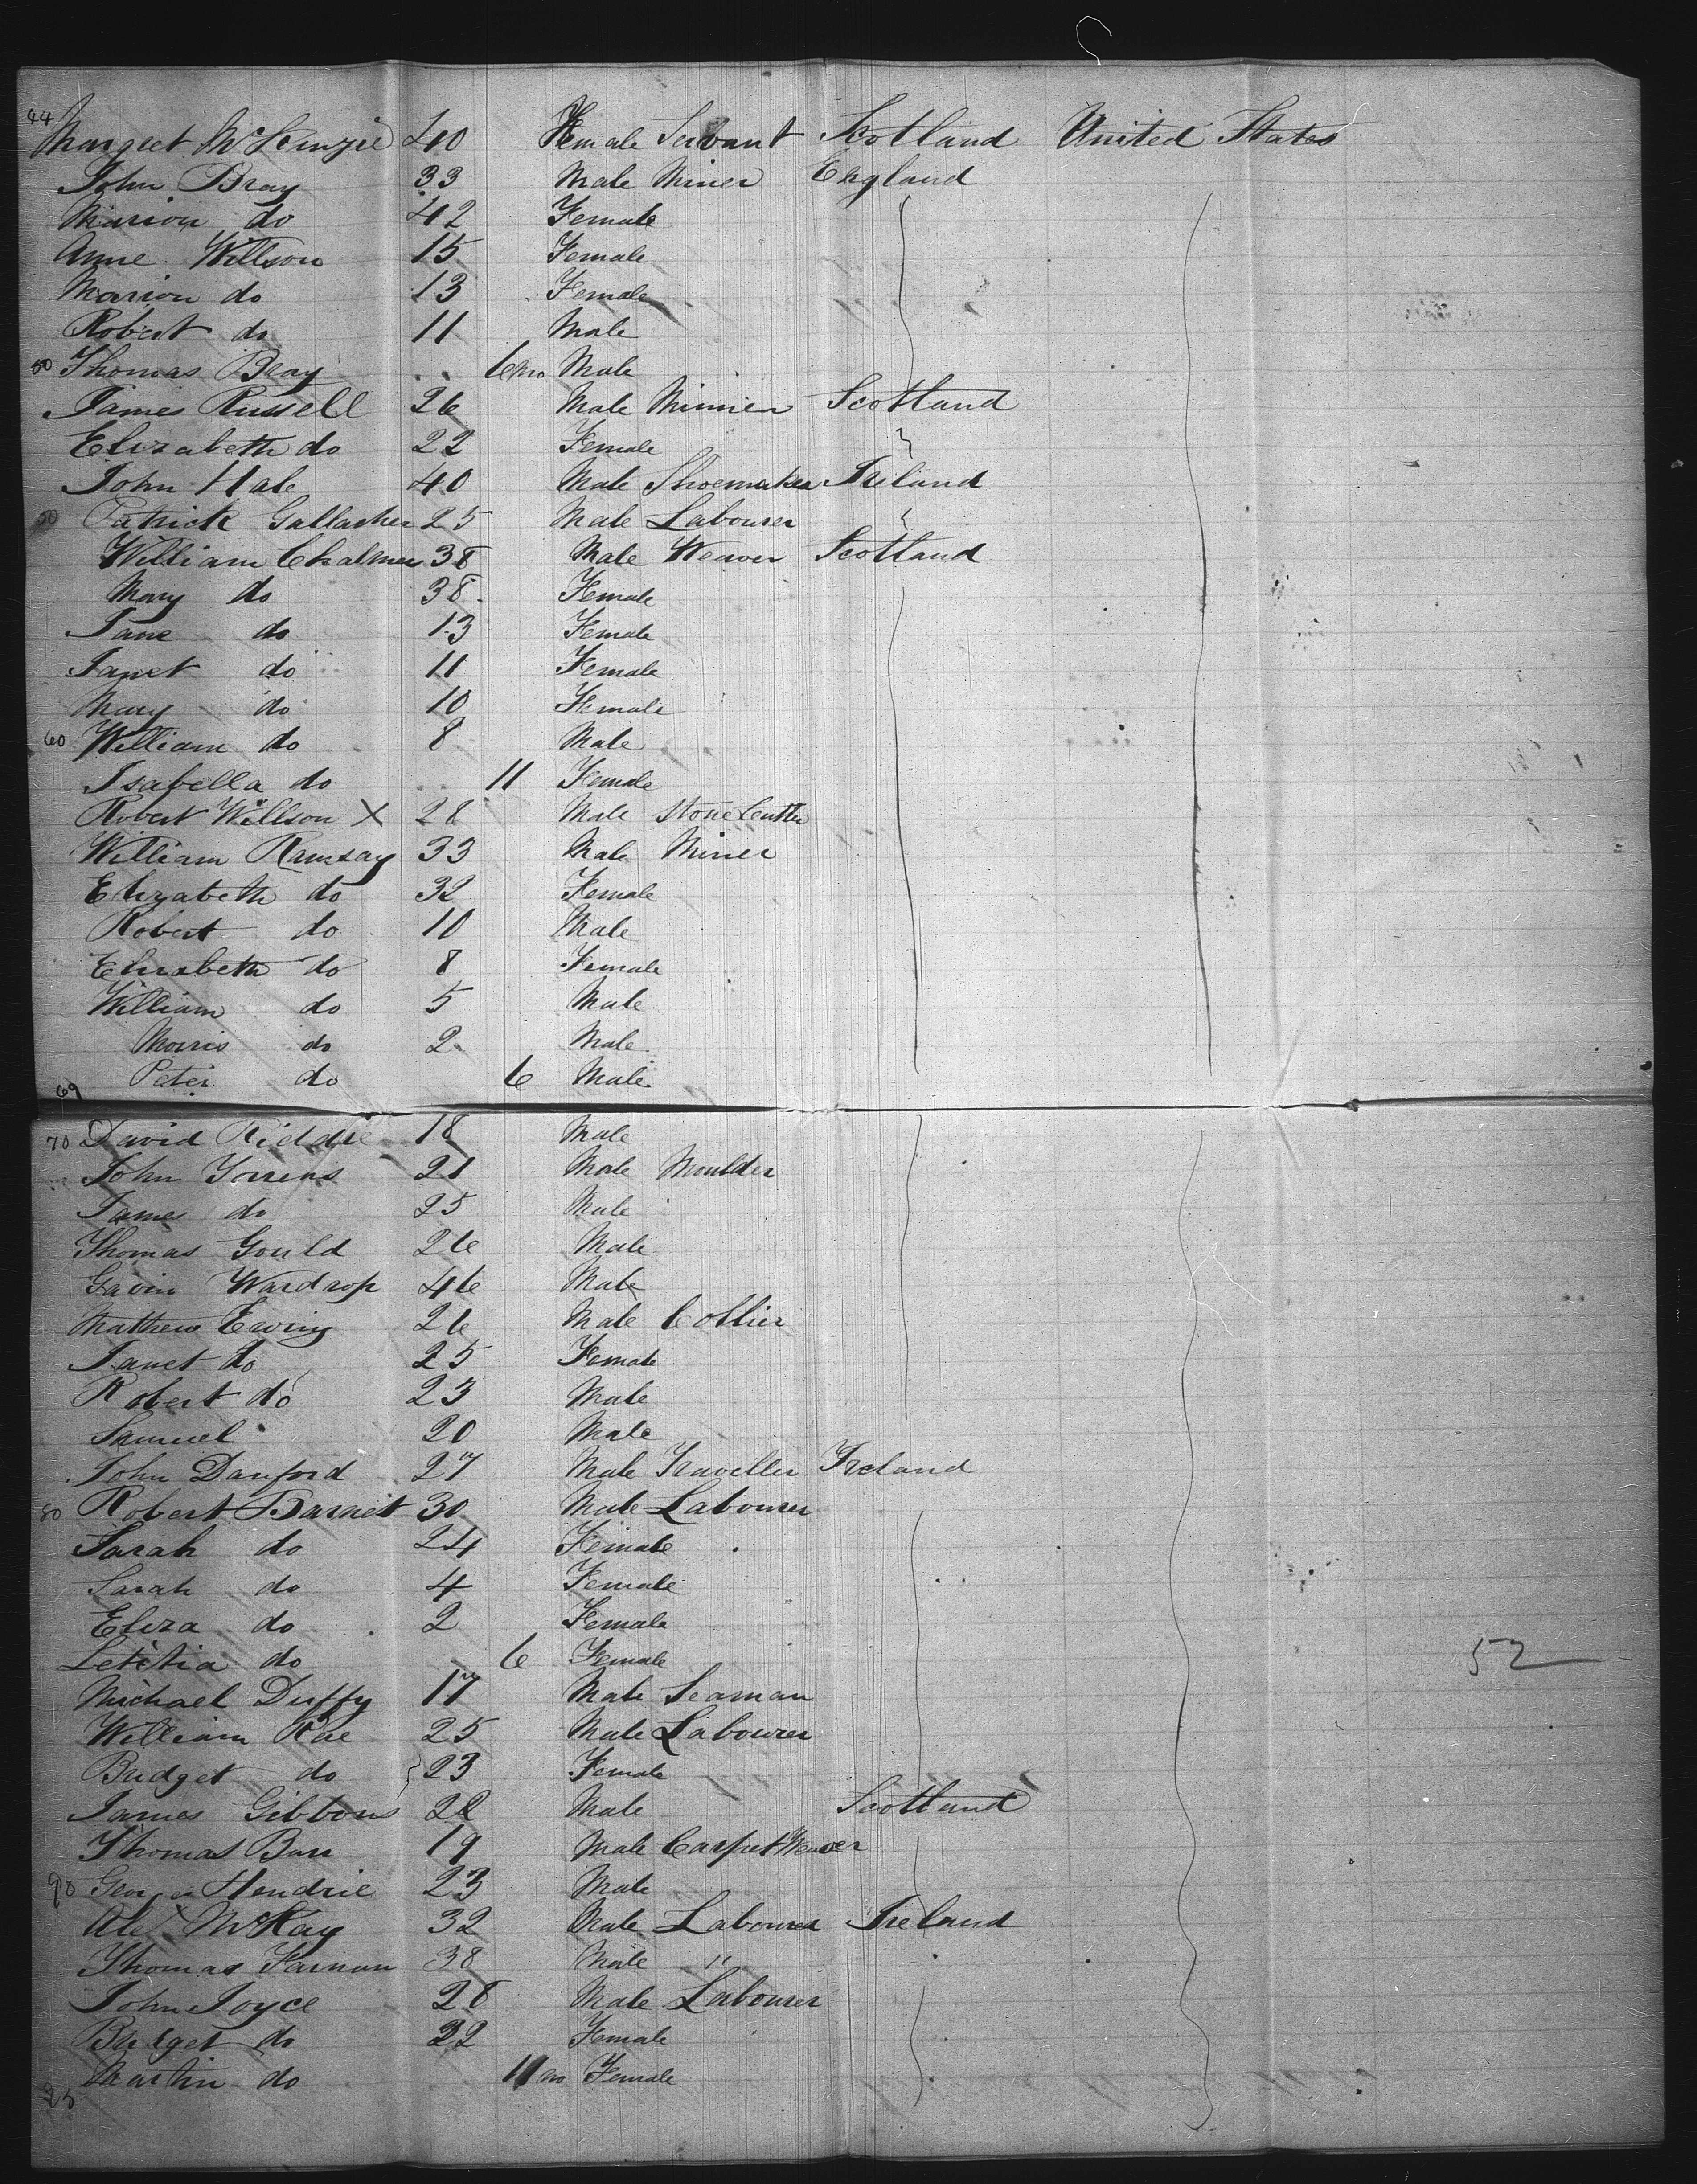 44
Margeet McKenzie 40 Female Servant Scotland United States
John Bray 33 Male Miner England
Marion do 42 Female
Anne Willson 15 Female
Marion do 13 Female
Robert do 11 Male
50 Thomas Bray 6mo Male
James Russell 26 Male Minier Scotland
Elizabeth do 22 Female
John Hale 40 Male Shoemaker Ireland
50 Patrick Gallagher 25 Male Labourer
William Chalmers 38 Male Weaver Scotland
Mary do 38 Female
Jane do 13 Female
Janet do 11 Female
Mary do 10 Female
60 William do 8 Male
Isabella do 11 Female
Robert Willson X 28 Male Stone Cutter
William Ramsay 33 Male Miner
Elizabeth do 32 Female
Robert do 10 Male
Elizabeth do 8 Female
William do 5 Male
Morris do 2 Male
Peter do 6 Male
69
70 David Riddle 18 Male
John Torrens 21 Male Moulder
James do 25 Male
Thomas Gould 26 Male
Gavin Wardrop 46 Male
Mathew Ewing 26 Male Collier
Janet do 25 Female
Robert do 23 Male
Samuel 20 Male
John Danford 27 Male Traveller Ireland
80 Robert Barnet 30 Male Labourer
Sarah do 24 Female
Sarah do 4 Female
Eliza do 2 Female
Letitia do 6 Female
52
Michael Duffy 17 Male Seaman
William Rae 25 Male Labourer
Bridget do 23 Female
James Gibbons 28 Male Scotland
Thomas Barr 19 Male Carpet Weaver
90 George Hendrie 23 Male
Alex McKay 32 Male Labourer Ireland
Thomas Farnan 38 Male "
John Joyce 28 Male Labourer
Bridget do 22 Female
Martin do 11 mo Female
95